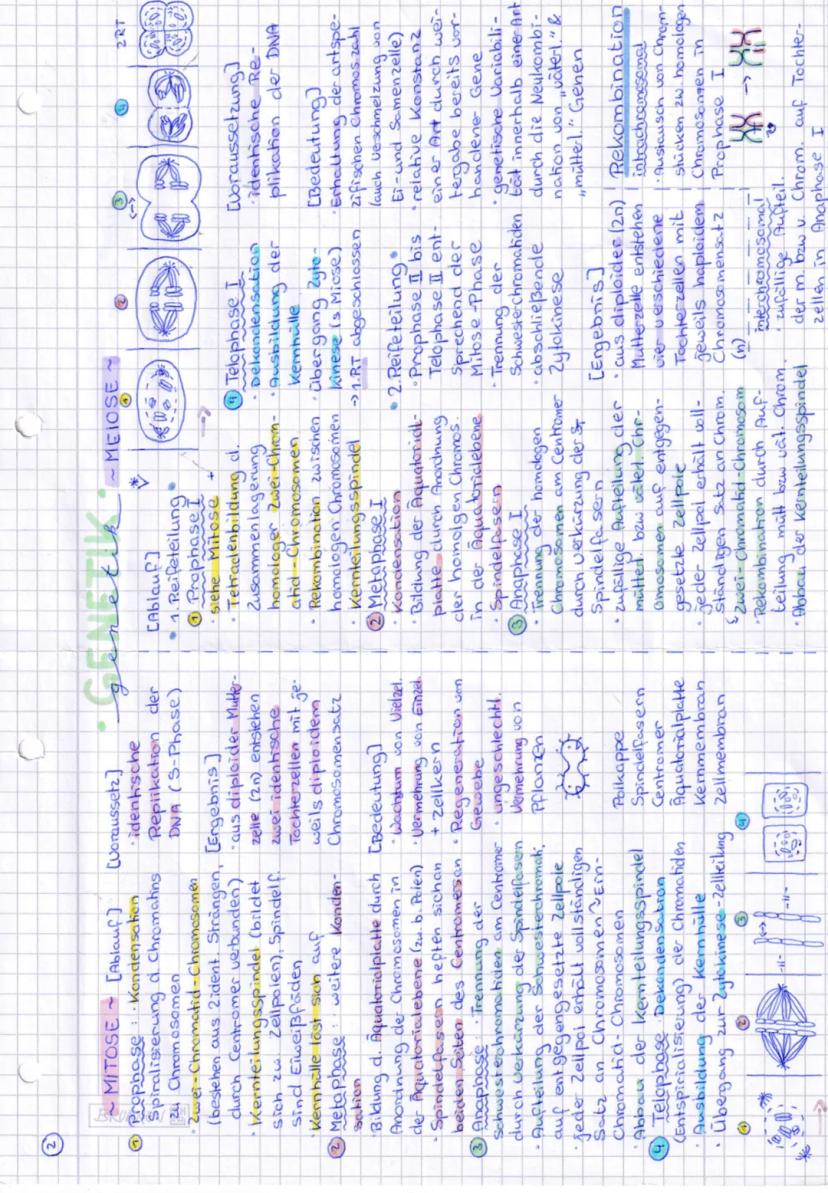 2
• GENETIK •
genetik
~ MITOSE ~ [Ablauf]
1 Prophase: · Kondensation
Spiralisierung d. Chromatins
zu Chromosomen
· Zwei-Chromatid-Chromosomen
(bestehen aus 2 ident. Strängen,
durch Centromer verbunden)
· Kernteilungsspindel (bildet
sich zw. Zellpolen), Spindelf.
sind Eiweißfäden
· Kernhülle löst sich auf
2 Metaphase: · weitere Konden-
sation
· Bildung d. Äquatorialplatte durch
Anordnung der Chromosomen in
der Äquatorialebene (zw. b. Polen)
· Spindelfasern heften sich an
beiden Seiten des Centromers an
3 Anaphase: · Trennung der
Schwesterchromatiden am Centromer
durch Verkürzung der Spindelfasern
· Aufteilung der Schwesterchromat.
auf entgegengesetzte Zellpole
· jeder Zellpol erhält vollständigen
Satz an Chromosomen → Ein-
Chromatid-Chromosomen
· Abbau der Kernteilungsspindel
4 Telophase · Dekondensation
(Entspiralisierung) der Chromatiden
· Ausbildung der Kernhülle
· Übergang zur Zytokinese - Zellteilung
1
2
3
4
[Voraussetz.]
· identische
Replikation der
DNA (S-Phase)
[Ergebnis]
· aus diploider Mutter-
zelle (2n) entstehen
zwei identische
Tochterzellen mit je-
weils diploidem
Chromosomensatz
[Bedeutung]
· Wachstum von Vielzel.
· Vermehrung von Einzel.
+ Zellkern
· Regeneration von
Gewebe
· ungeschlechtl.
Vermehrung von
Pflanzen
Polkappe
Spindelfasern
Centromer
Äquatorialplatte
Kernmembran
Zellmembran
~ MEIOSE ~
1
2
3
4
2RT
[Ablauf]
• 1. Reifeteilung •
1 Prophase I
siehe Mitose +
· Tetradenbildung d.
Zusammenlagerung
homologer Zwei-Chrom-
atid-Chromosomen
· Rekombination zwischen
homologen Chromosomen
· Kernteilungsspindel
2 Metaphase I
· Kondensation
· Bildung der Äquatorial-
platte durch Anordnung
der homolgen Chromos.
in der Äquatorialebene
· Spindelfasern
3 Anaphase I
· Trennung der homologen
Chromosomen am Centromer
durch Verkürzung der
Spindelfasern
· zufällige Aufteilung der
mütterl. bzw. väterl. Chr-
omosomen auf entgegen-
gesetzte Zellpole
· jeder Zellpol erhält voll-
ständigen Satz an Chrom.
Zwei-Chromatid-Chromosom
· Rekombination durch Auf-
teilung mütt. bzw. vät. Chrom.
· Abbau der Kernteilungsspindel
4 Telophase I
· Dekondensation
· Ausbildung der
Kernhülle
· Übergang Zyto-
kinese (s Miose)
→ 1.RT abgeschlossen
• 2. Reifeteilung •
· Prophase II bis
Telophase II ent-
sprechend der
Mitose-Phase
· Trennung der
Schwesterchromatiden
· abschließende
Zytokinese
[Ergebnis]
· aus diploider (2n)
Mutterzelle entstehen
vier verschiedene
Tochterzellen mit
jeweils haploidem
Chromosomensatz
(n)
[Voraussetzung]
· identische Re-
plikation der DNA
[Bedeutung]
· Erhaltung der artspe-
zifischen Chromos.zahl
(auch Verschmelzung von
Ei- und Samenzelle)
· relative Konstanz
einer Art durch Wei-
tergabe bereits vor-
handener Gene
· genetische Variabili-
tät innerhalb einer Art
durch die Neukombi-
nation von „väterl." &
„mütterl." Genen
Rekombination
intrachromosomal
· Austausch von Chrom-
stücken zw. homologen
Chromosomen in
Prophase I
interchromosomal
· zufällige Aufteil.
der m. bzw v. Chrom. auf Tochter-
zellen in Anaphase I